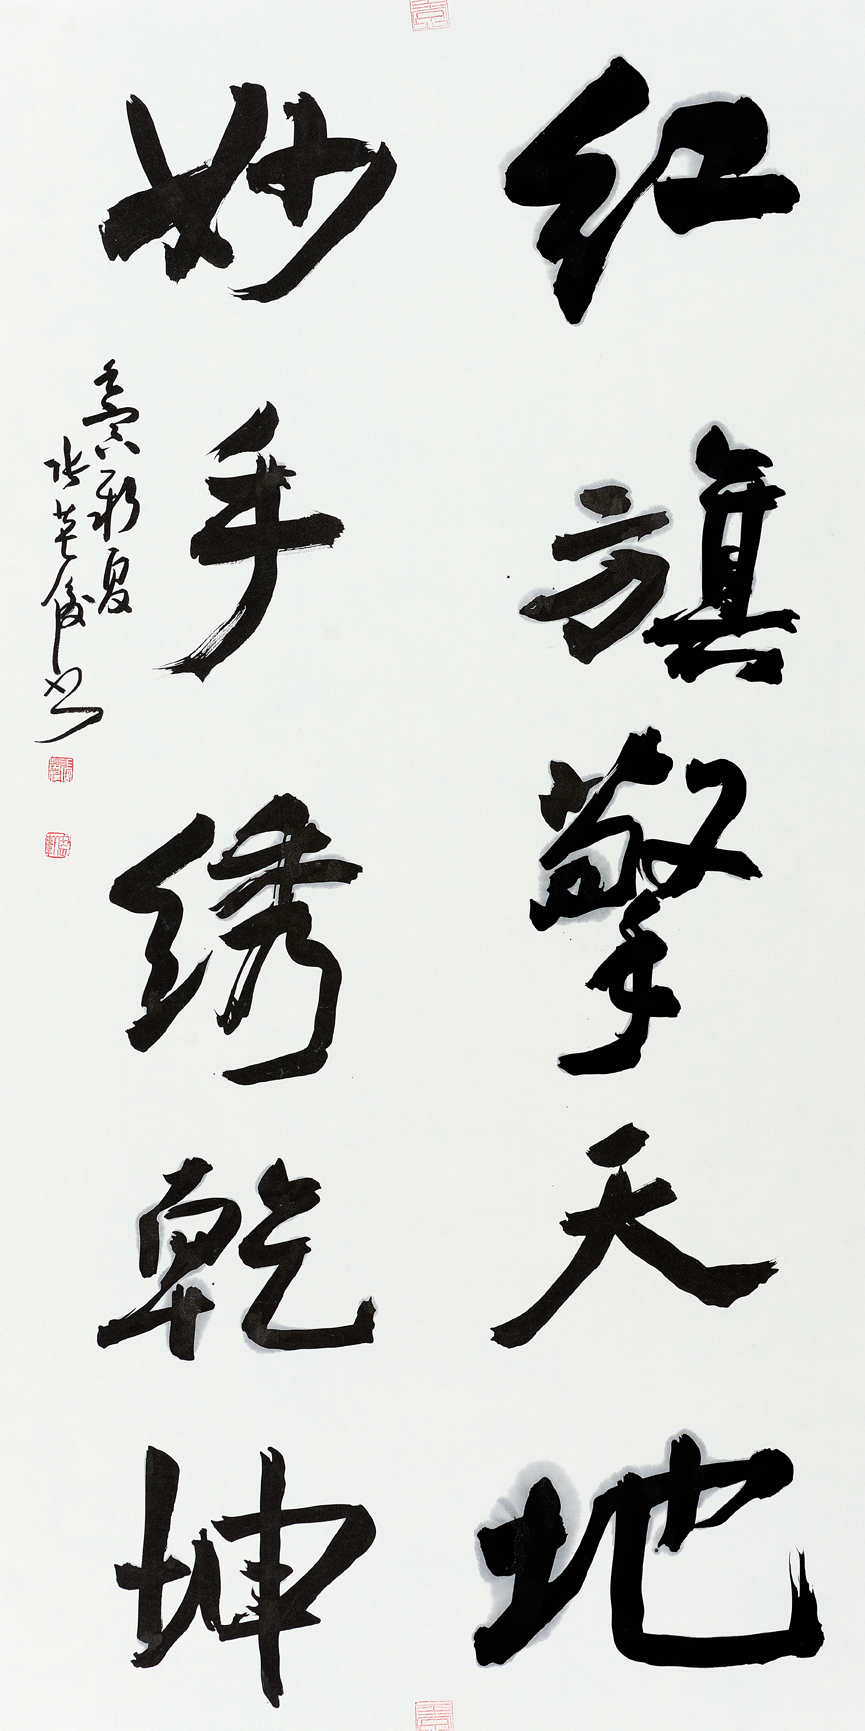 红旗擎天地
妙手绣乾坤
壬寅秋夏
张英俊书